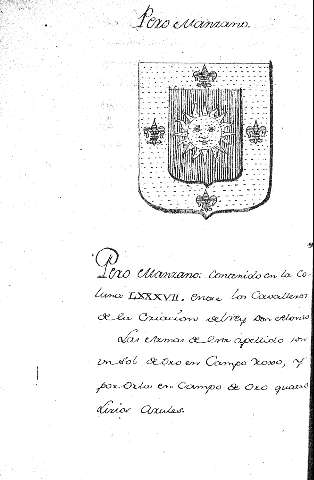 Pero Manzano.
Pero Manzano: Contenido en la Co-
luna LXXXVII. entre los Cavalleros
de la Criacion del Rey Don Alonso
Las Armas de este apellido son
un Sol de Oro en Campo Roxo, y
por Orla en Campo de Oro quatro
Lirios Azules.